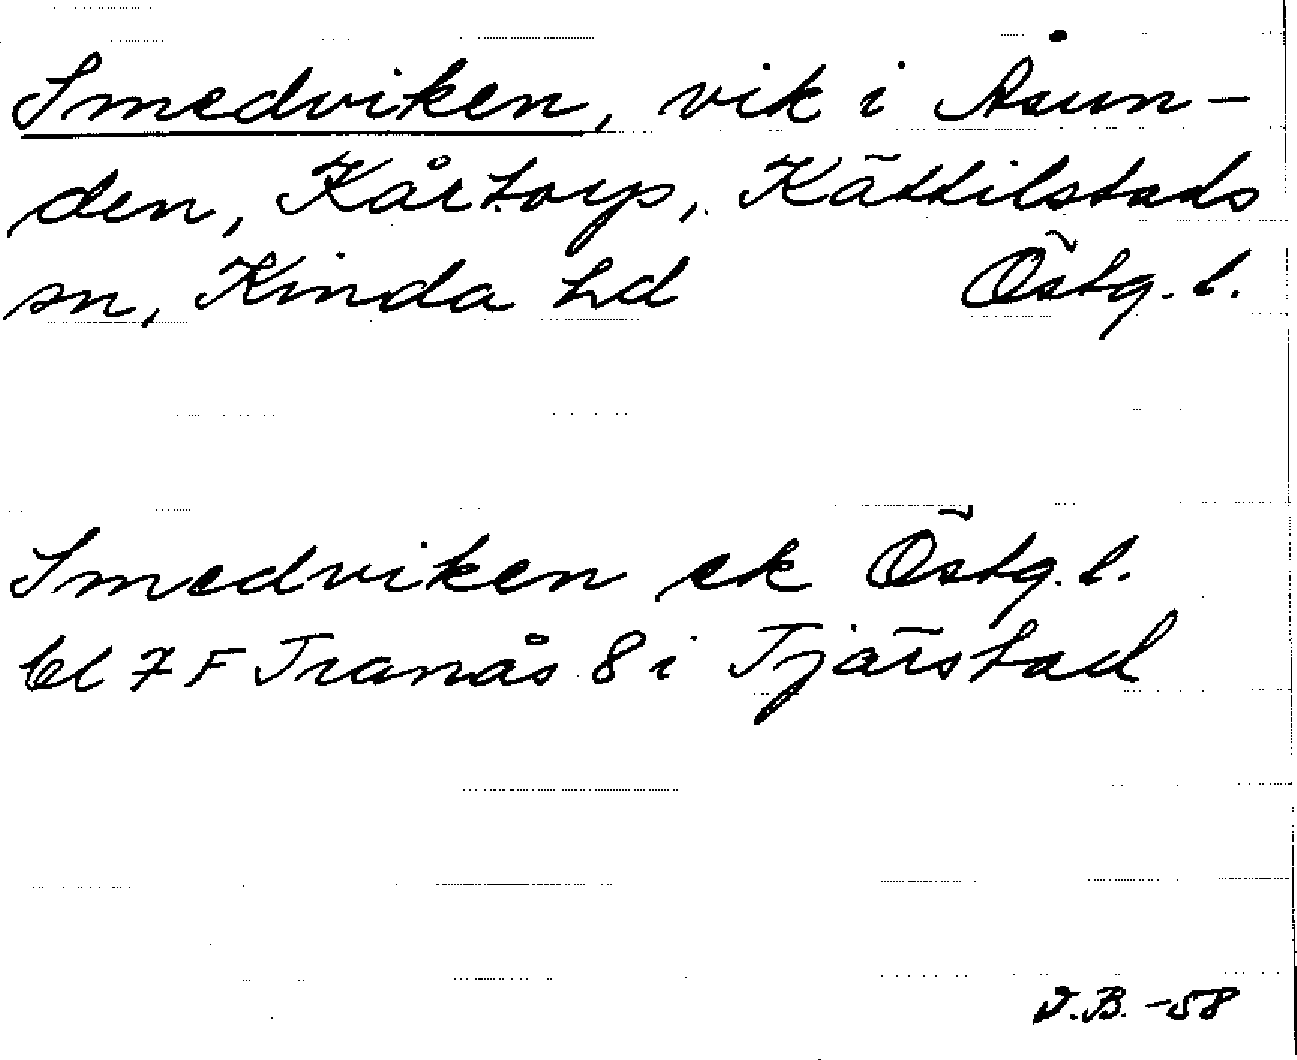 Smedviken, vik i Åsun-
den, Kårtorp, Kättilstads
sn, Kinda hd Östg. l.
Smedviken ek Östg. l.
bl 7 F Tranås 8 i Tjärstad
V.B. -58